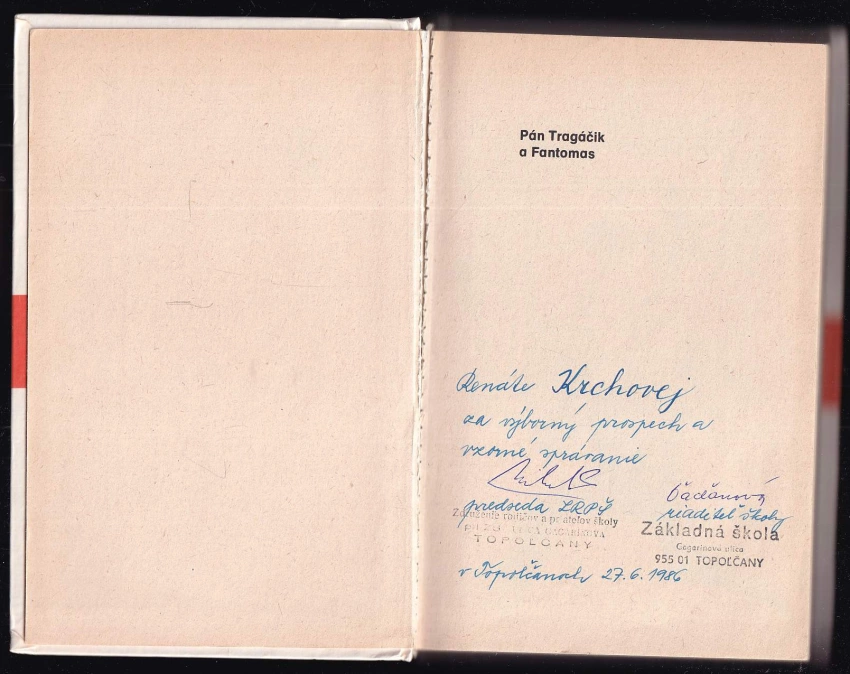 Pán Tragáčik
a Fantomas
Renáte Krchovej
za výborný prospech a
vzorné správanie
predseda ZRPŠ
riaditeľ školy
Združenie rodičov a priateľov školy
pri ZŠ GAGARINOVA
TOPOĽČANY
Základná škola
Gagarinova ulica
955 01 TOPOĽČANY
v Topoľčanoch 27.6.1986